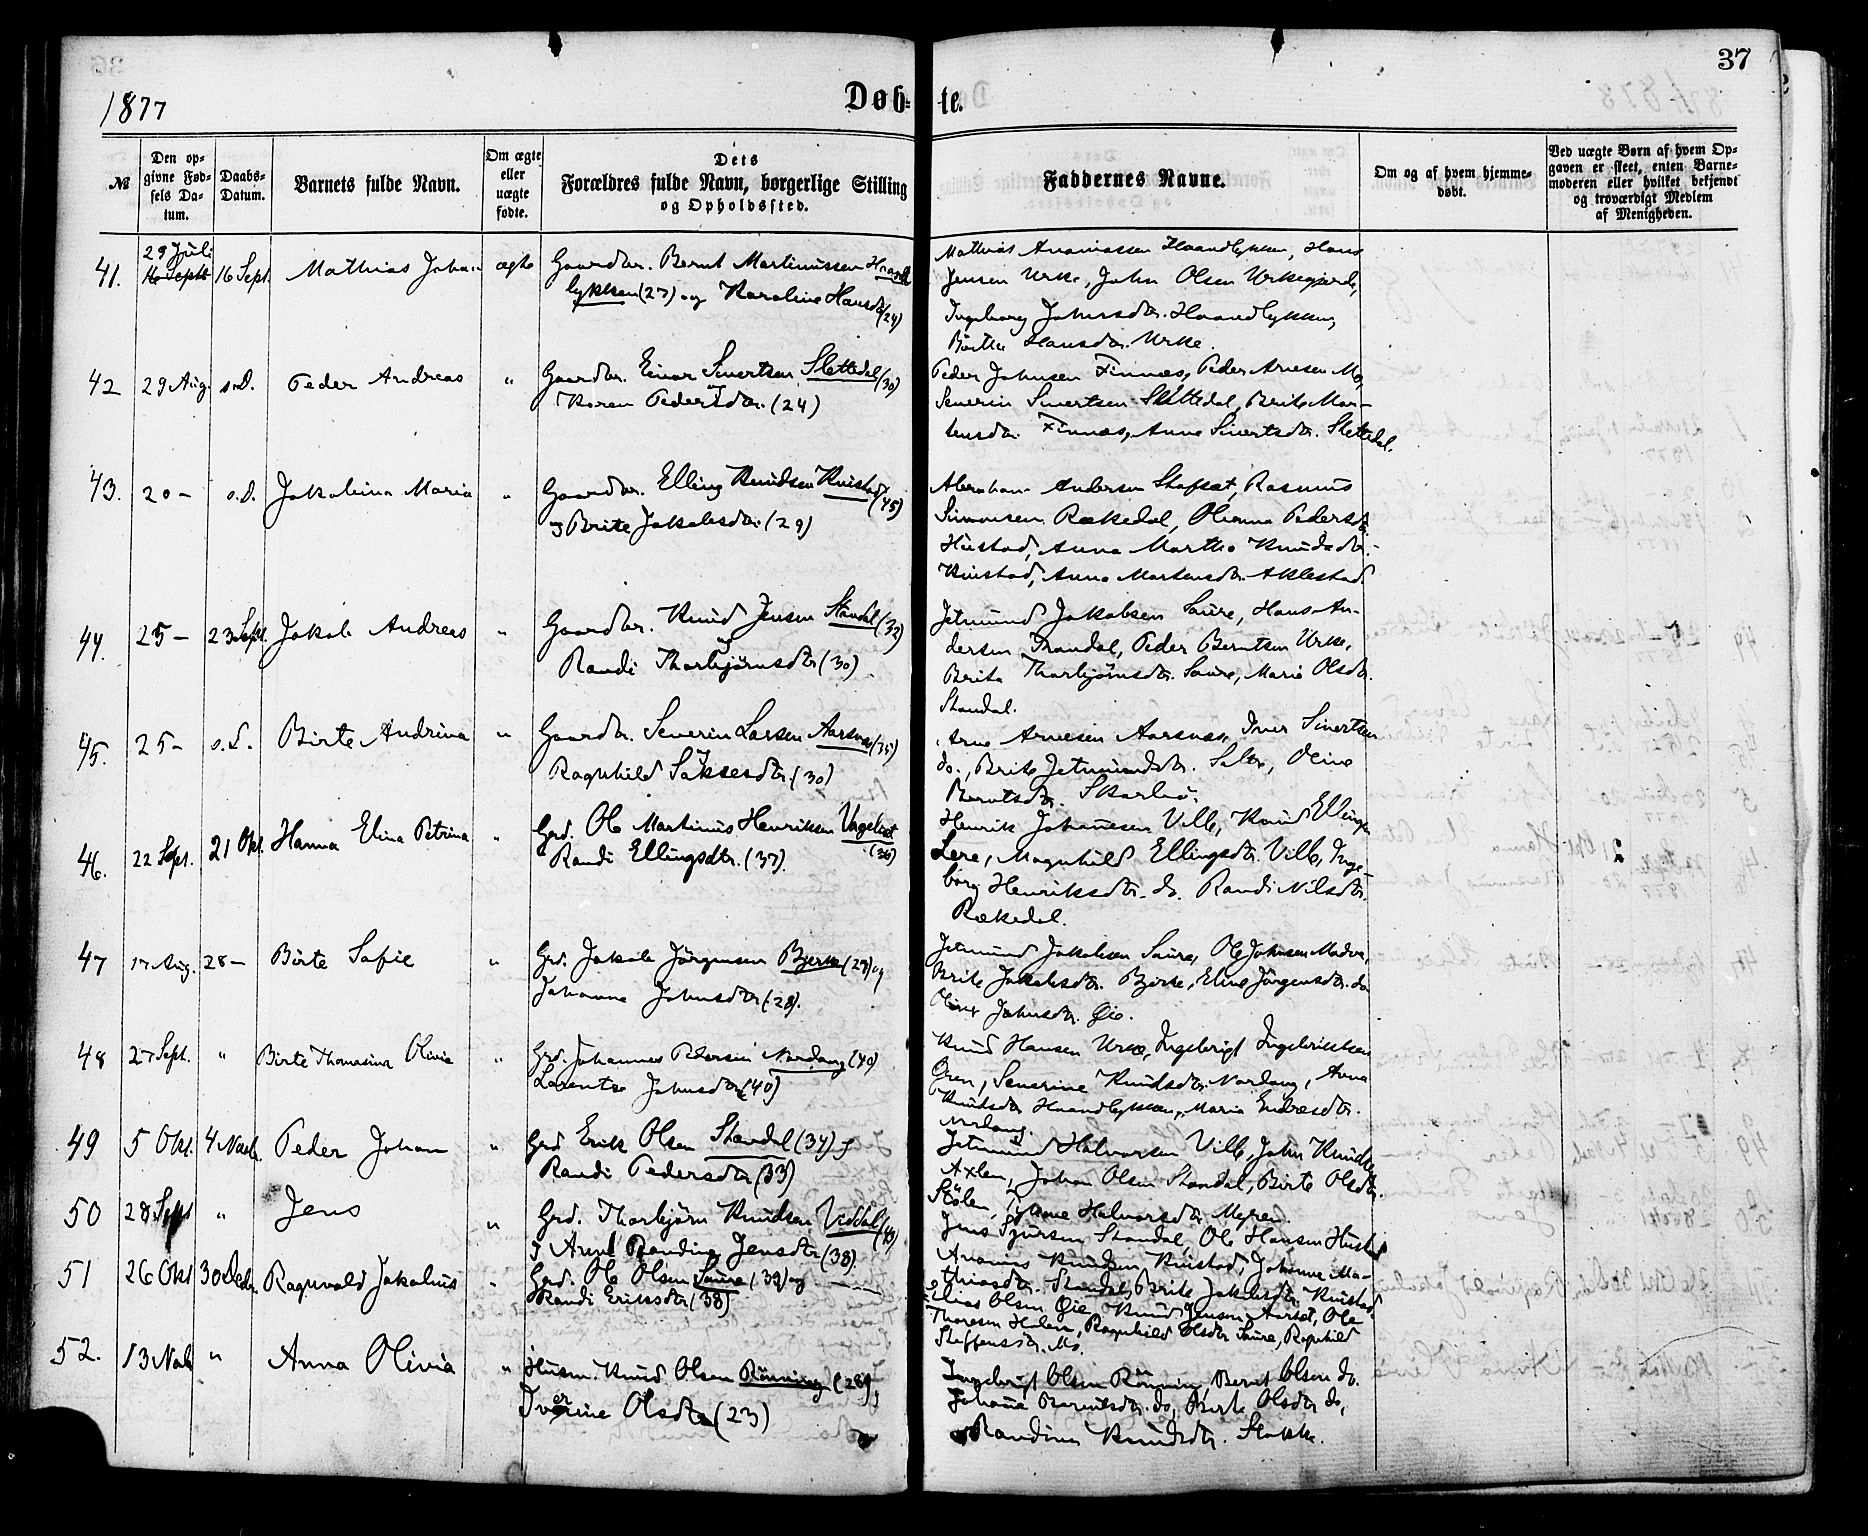 37
1877
Døb- te.
№
Den op-
givne Fød-
sels Da-
tum.
Daabs-
Datum.
Barnets fulde Navn.
Om ægte
eller
uægte
fødte.
Dets
Forældres fulde Navn, borgerlige Stilling
og Opholdssted.
Faddernes Navne.
Om og af hvem hjemme-
døbt.
Ved uægte Børn af hvem Op-
gaven er skeet, enten Barne-
moderen eller hvilket bekjendt
og troværdigt Medlem
af Menigheden.
41.
29 Juli
16 Sept
16 Sept.
Mathias Johan
ægte
Gaardbr. Bernt Martinussen Haand
lykken (27) og Karoline Hansdtr (24)
Mathias Ananiassen Haandlykken, Hans
Jensen Urke, John Olsen Urkegjerde,
Ingeborg Johnsdtr. Haandlykken,
Birthe Hansdtr. Urke.
42
29 Aug.
s.D.
Peder Andreas
"
Gaardbr. Einar Sivertsen Slettedal (30)
Karen Pedersdtr. (24)
Peder Johnsen Finnæs, Peder Arnesen Mo,
Severin Sivertsen Slettedal, Brite Mar-
tensdtr. Finnæs, Anne Sivertsdtr. Slettedal.
43.
20 –
s.d.
Jakobina Maria
"
Gaardbr. Elling Knudsen Kvistad (45)
og Brite Jakobsdtr. (29)
Abraham Andersen Skafsæt, Rasmus
Simonsen Rækedal, Olianna Pedersdtr.
Hustad, Anna Martha Knudsdtr.
Kvistad, Anna Martensdtr. Aklestad.
44.
25 –
23 Sept.
Jakob Andreas
"
Gaardbr. Knud Jensen Standal (32)
Randi Thorbjörnsdtr (30)
Jetmund Jakobsen Saure, Hans An-
dersen Trandal, Peder Berntsen Urke,
Brita Thorbjörnsdtr. Saure, Marie Olsdtr.
Standal.
45.
25 –
s.D.
Birte Andrina
"
Gaardbr. Severin Larsen Aarsnæs (35)
Ragnhild Saksesdtr (30)
Arne Arnesen Aarsnæs, Iver Sivertsen
do., Brite Jetmundsdtr. Sæbø, Oline
Berntsdtr. Skarbø.
46.
22 Sept.
21 Okt.
Hanna Elina Petrina
"
Grd. Ole Martinus Henriksen
(36)
Randi Ellingsdtr. (37).
Henrik Johannesen Villb, Knud Ellingsen
Lere, Magnhild Ellingsdtr. Villb, Inge-
borg Henriksdtr. do. Randi Nilsdtr.
Rækedal.
47
17 Aug.
28 –
Birte Sofie
"
Grd. Jakob Jörgensen Bjerke (29) og
Johanna Johnsdtr (28).
Jetmund Jakobsen Saure, Ole Johnsen
Brite Jakobsdtr. Bjerke, Eline Jörgensdtr. do
Johnsdtr. Øie.
48
27 Sept.
"
Birte Thomasina Olivia
"
Grd. Johannes Pedersen Nordang (40)
Lorentse Johnsdtr (40)
Knud Hansen Urke, Ingebrigt Ingebrigtsen
Gren, Severine Knudsdtr. Nordang, Anna
Knudsdtr Haandlykken, Maria Endresdtr.
Nordang.
49
5 Okt.
4 Novb.
Peder Johan
"
Grd Erik Olsen Standal (34) og
Randi Pedersdtr (33)
Jetmund Halvorsen Villb, John Knudsen
Axlen, Johan Olsen Standal, Birte Olsdtr.
Stölen, Halvorsdtr. Myren.
50
28 Sept
"
Jens
"
Grd. Thorbjörn Knudsen Viddal (43)
og Anne Randine Jensdtr (38).
Jens Sjursen Standal, Ole Hansen Hustad
Ananias Knudsen Kvistad, Johanne Ma-
thiasdtr. Standal, Brite Jakobsdtr. Kvistad
51
26 Okt
30 Decbr.
Ragnvald Jakobus
"
Grd. Ole Olsen Saure (39) og
Randi Eriksdtr (38)
Elias Olsen Øie, Knud Jensen Aarset, Ole
Thoresen Halen, Ragnhild Olsdtr Saure, Ragnhild
Steffensdtr. Mo.
52.
13 Novb
"
Anna Olivia
"
Husm. Knud Olsen Rönning (28),
Iverine Olsdtr (23)
Ingebrigt Olsen Rönning, Bernt Olsen do.
Johanne Berntsdtr. do, Birte Olsdtr do,
Randine Knudsdtr. Stokke.